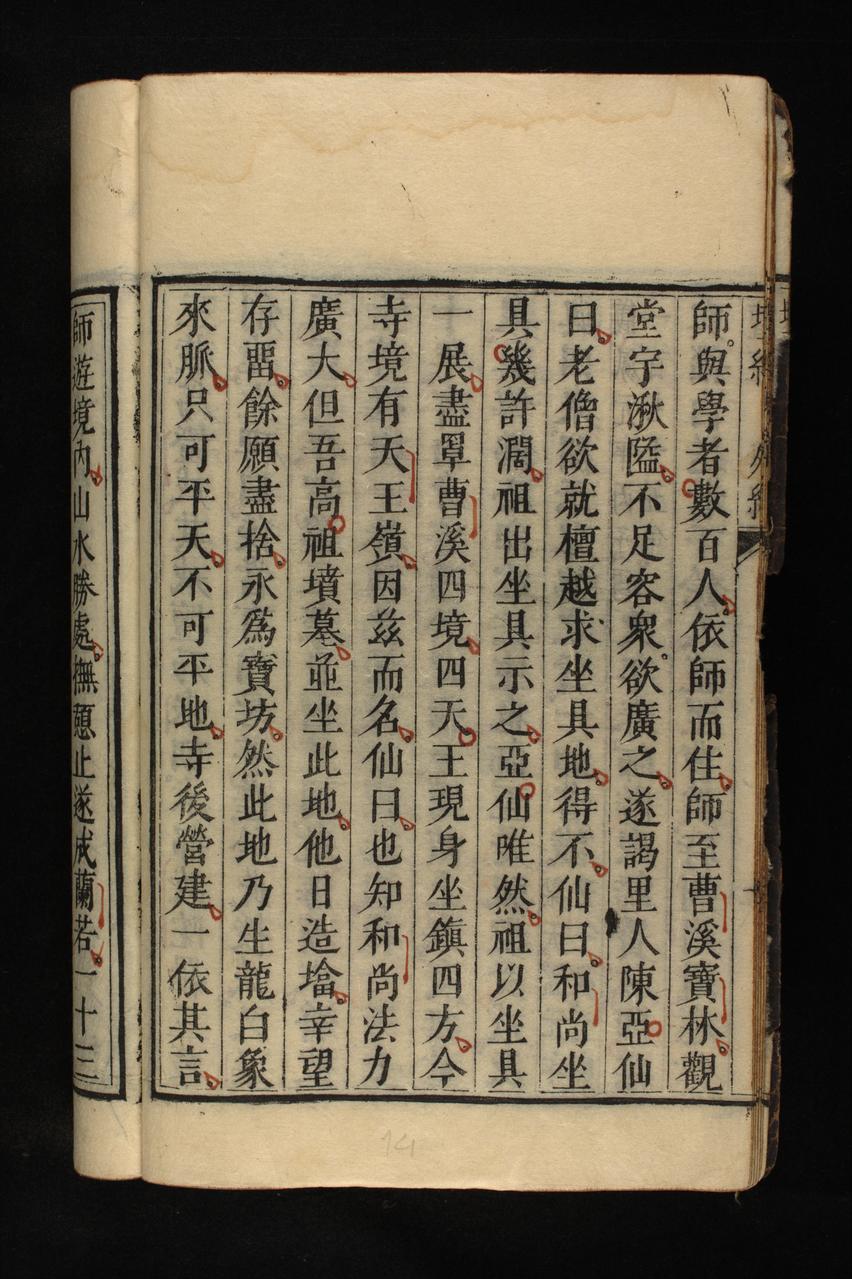 師與學者數百人依師而住師至曹溪寶林觀
堂宇湫隘不足容衆欲廣之遂謁里人陳亞仙
曰老僧欲就檀越求坐具地得不仙曰和尚坐
具幾許濶祖出坐具示之亞仙唯然祖以坐具
一展盡罩曹溪四境四天王現身坐鎮四方今
寺境有天王嶺因茲而名仙曰也知和尚法力
廣大但吾高祖墳墓並坐此地他日造墖幸望
存畱餘願盡捨永爲寶坊然此地乃生龍白象
來脈只可平天不可平地寺後營建一依其言
師遊境內山水勝處輙憩止遂成蘭若一十三
14